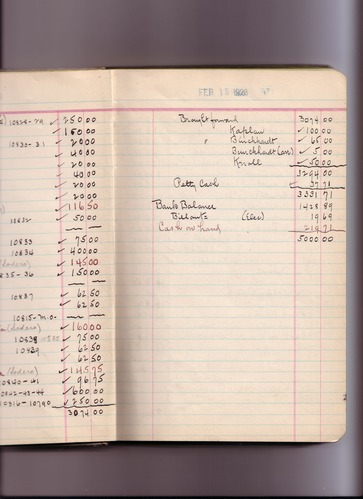 10828-29 ✓ 250 00
✓ 150 00
10830-31 ✓ 20 00
✓ 40 00
✓ 20 00
✓ 20 00
✓ 40 00
✓ 20 00
✓ 20 00
✓ 116 50
10832 ✓ 50 00
— —
10833 ✓ 75 00
10834 ✓ 400 00
(Lodero) ✓ 145 00
835-36 ✓ 150 00
— —
10837 ✓ 62 50
✓ 62 50
10815-m.o. — —
(Lodero) ✓ 160 00
10838 ✓ 75 00
10839 ✓ 62 50
✓ 62 50
(Lodero) ✓ 145 75
10840-41 ✓ 96 75
10842-43-44 ✓ 600 00
10316-10790 ✓ 250 00
3074 00
FEB 15
Brought forward 3074 00
Kaplan ✓ 100 00
" Burckhardt ✓ 65 00
Burckhardt ✓ 5 00
Knoll ✓ 50 00
3294 00
Petty Cash ✓ 37 71
3331 71
Bank Balance 1428 89
19 69
Cash on hand 219 71
5000 00